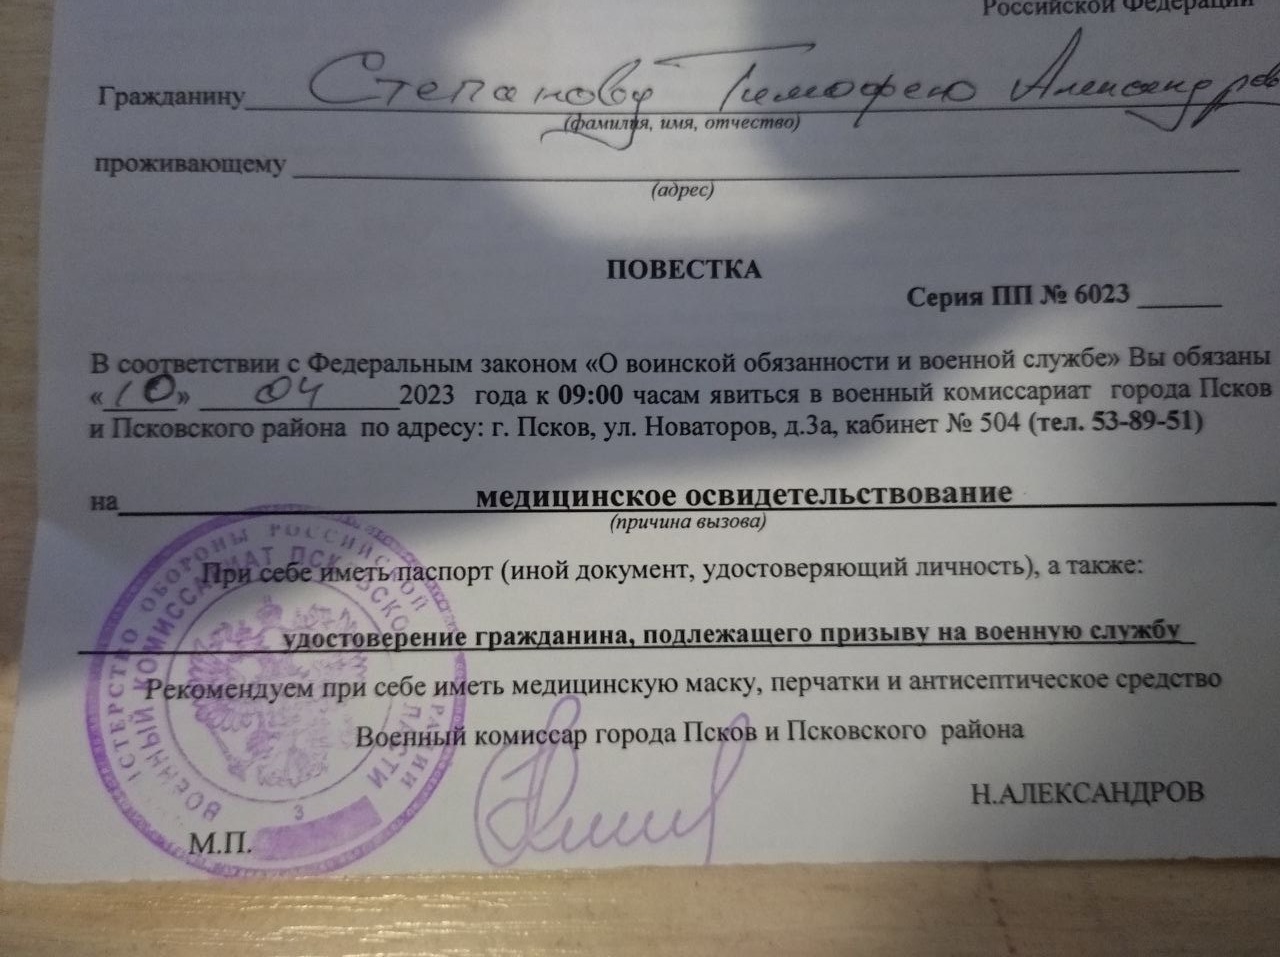 Российской Федерации
Гражданину Степанову Тимофею Александров
(фамилия, имя, отчество)
проживающему
(адрес)
ПОВЕСТКА
Серия ПП № 6023
В соответствии с Федеральным законом «О воинской обязанности и военной службе» Вы обязаны
«10» 04 2023 года к 09:00 часам явиться в военный комиссариат города Псков
и Псковского района по адресу: г. Псков, ул. Новаторов, д.3а, кабинет № 504 (тел. 53-89-51)
на медицинское освидетельствование
(причина вызова)
При себе иметь паспорт (иной документ, удостоверяющий личность), а также:
удостоверение гражданина, подлежащего призыву на военную службу
Рекомендуем при себе иметь медицинскую маску, перчатки и антисептическое средство
Военный комиссар города Псков и Псковского района
Н.АЛЕКСАНДРОВ
М.П.
ИСТЕРСТВО ОБОРОНЫ РОССИЙСКОЙ ЕРАЦИИ
ВОЕННЫЙ КОМИССАРИАТ ПСКОВСКО ЛАСТИ
3